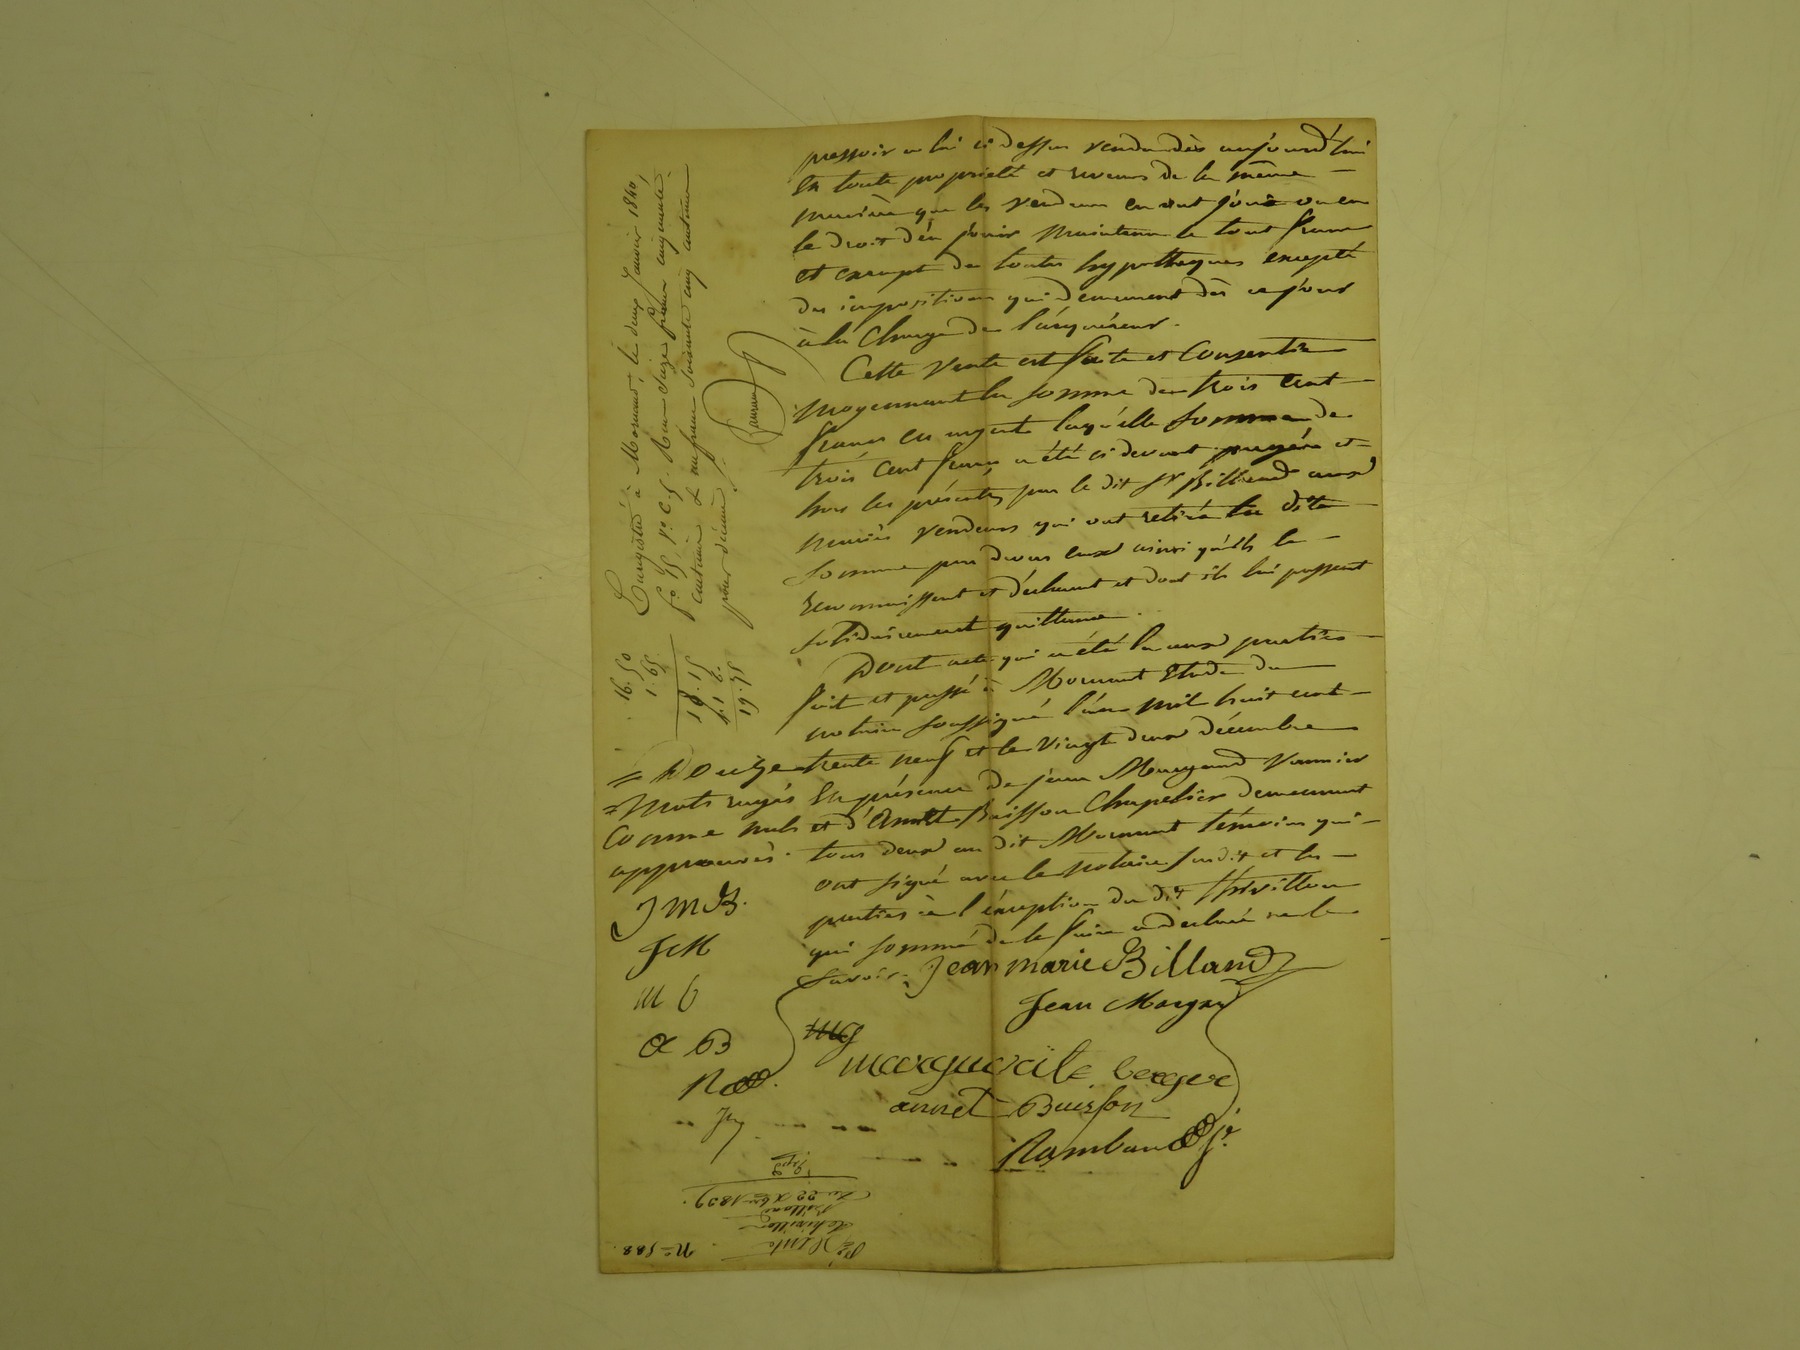 pressoir a lui ci dessus vendu dès aujourd'hui
En toute propriété et revenus de la même
manière que les vendeurs en ont joui ou eu
le droit d'en jouir maintenu le tout franc
et exempt de toutes hypothèques excepté
des impositions qui demeurent dès ce jour
à la Charge de l'acquéreur.
Cette Vente est faite et Consentie
moyennant la somme de trois cent
francs en argent laquelle somme de
trois cent francs a été ci devant payée et
hors les présentes par le dit Sr Billand aux
mariés vendeurs qui ont retiré la dite
somme par devers eux ainsi qu'ils le
reconnaissent et déclarent et dont ils lui passent
solidairement quittance.
Dont acte qui a été lu aux parties
fait et passé à Mornant Etude du
notaire soussigné l'an mil huit cent
trente neuf et le Vingt deux décembre
En présence de jean Margand Vannier
et d'Annet Buisson Chapelier demeurant
tous deux au dit Mornant témoins qui
ont signé avec le notaire susdit et les
parties à l'exception du dit Thivillon
qui sommé de le faire a déclaré ne le
Savoir.
Jean marie Billand
Jean Margand
marguerite berger
annet Buisson
Rambaud Je
= Douze
= Mots rayés
Comme nuls
approuvés.
J M B.
J M
m b
a B
R
Enregistré à Mornant, le deux Janvier 1840,
fo 75 Vo C. 5. Reçu Seize francs cinquante
centimes & un franc soixante cinq centimes
pour décime.
16. 50
1. 65
18. 15
1. 60
19. 75
No 588
Vente
Thivillon
Billand
Du 22 Xbre 1839.
Expé